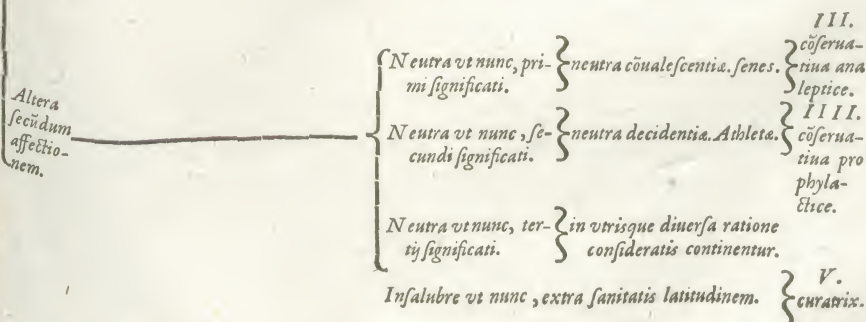 Altera
ſecūdum
affectio-
nem.
Neutra vt nunc, pri-
mi ſignificati.
neutra cōualeſcentiæ. ſenes.
III.
cōſerua-
tiua ana
leptice.
Neutra vt nunc, ſe-
cundi ſignificati.
neutra decidentiæ. Athletæ.
IIII.
cōſerua-
tiua pro
phyla-
ctice.
Neutra vt nunc, ter-
tij ſignificati.
in vtriſque diuerſa ratione
conſideratis continentur.
Inſalubre vt nunc, extra ſanitatis latitudinem.
V.
curatrix.